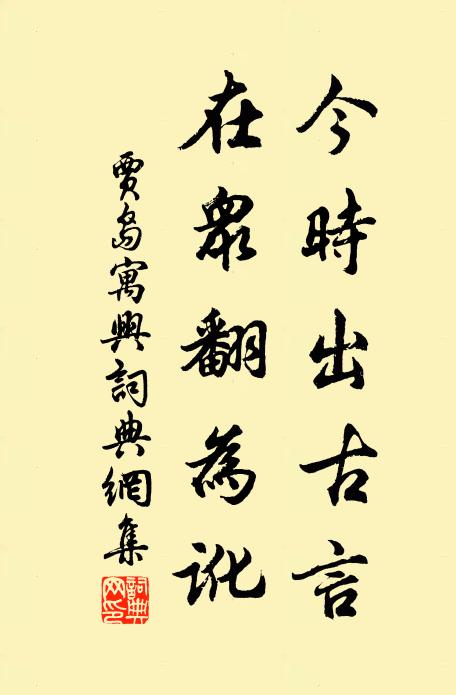 今時出古言
在眾翻為訛
賈島寓興詞典網集
詞典网印